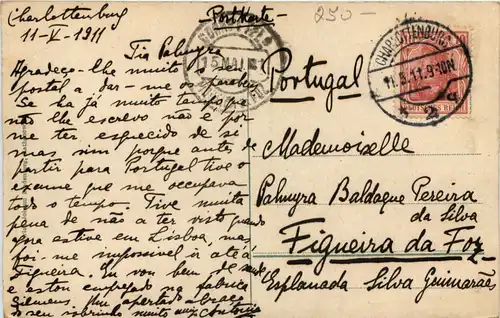 Charlottenburg
11-V-1911
Postkarte
250-
Tia Palmyra
Agradeço-lhe muito o
postal a dar-me os parabens
Se ha já muito tempo que
não lhe escrevo não é por
me ter esquecido de si
mas sim porque antes de
partir para Portugal tive o
exame que me occupava
todo o tempo. Tive muita
pena de não a ter visto quando
agora estive em Lisboa, mas
foi-me impossivel ir até á
Figueira. Eu vou bem de saude
e estou empregado na fabrica
Siemens. Um apertado abraço
do seu sobrinho muito amigo Antonio
15 MAI 11
CHARLOTTENBURG
11.5.11.9-10N.
* 2 d
Portugal
Mademoiselle
Palmyra Baldaque Pereira
da Silva
Figueira da Foz
Esplanada Silva Guimarães